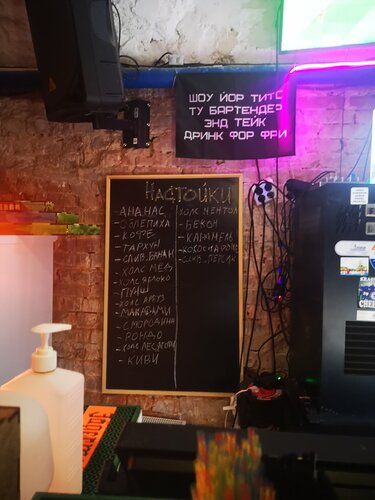 ШОУ ЙОР ТИТС
ТУ БАРТЕНДЕР
ЭНД ТЕЙК
ДРИНК ФОР ФРИ
НАСТОЙКИ
- АНАНАС
- ОБЛЕПИХА
- КОФЕ
- ТАРХУН
- СЛИВ. БАНАН
- ХОЛС МЕД
- ХОЛС ЯБЛОКО
- ПУНШ
- ХОЛС АРБУЗ
- МАКАДАМИ
- СМОРОДИНА
- РОНДО
- ХОЛС ЛЕС. ЯГОДЫ
- КИВИ
- ХОЛС МЕНТОЛ
- БЕКОН
- КАРАМЕЛЬ
- СЛИВ. ПЕРСИК